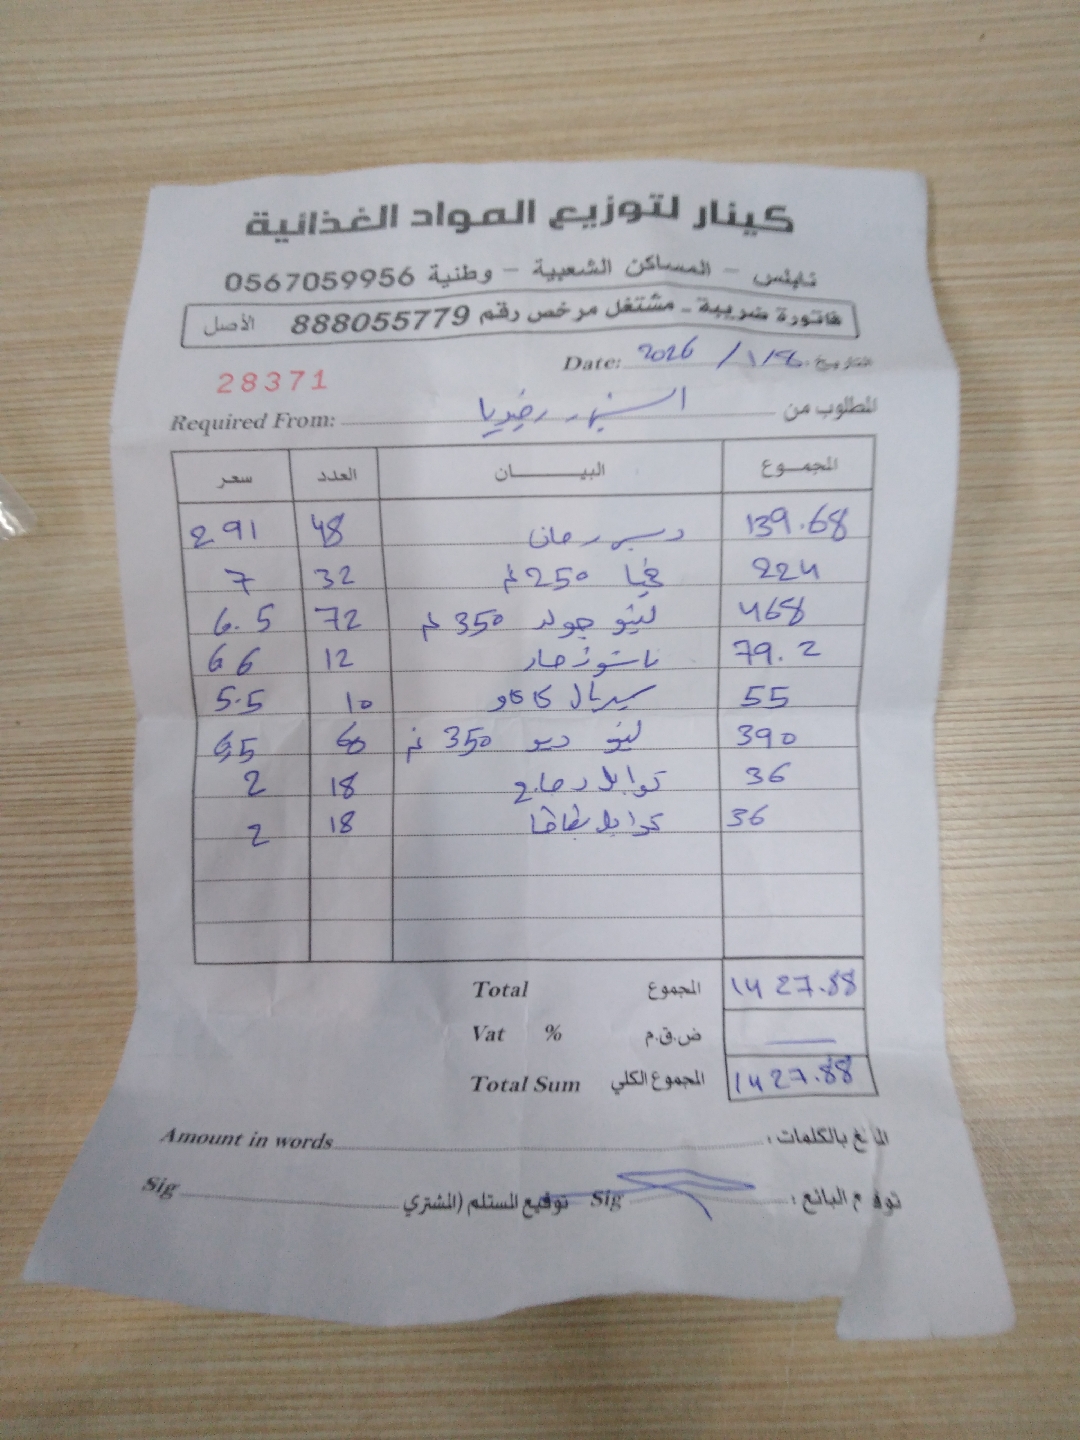 كينار لتوزيع المواد الغذائية
نابلس - المساكن الشعبية - وطنية 0567059956
فاتورة ضريبة - مشتغل مرخص رقم 888055779 الأصل
التاريخ Date: 2026 / 1 /
28371
المطلوب من Required From:
المجموع البيـــــان العدد سعر
139.68 دبس رمان 48 2.91
224 250 غم 32 7
468 لينو جولد 350 غم 72 6.5
79.2 حار 12 6.6
55 سيريال كاكاو 10 5.5
390 لينو ديو 350 غم 60 6.5
36 توابل دجاج 18 2
36 توابل بطاطا 18 2
Total المجموع 1427.88
Vat % ض.ق.م —
Total Sum المجموع الكلي 1427.88
Amount in words المبلغ بالكلمات :
توقيع البائع : Sig توقيع المستلم (المشتري Sig